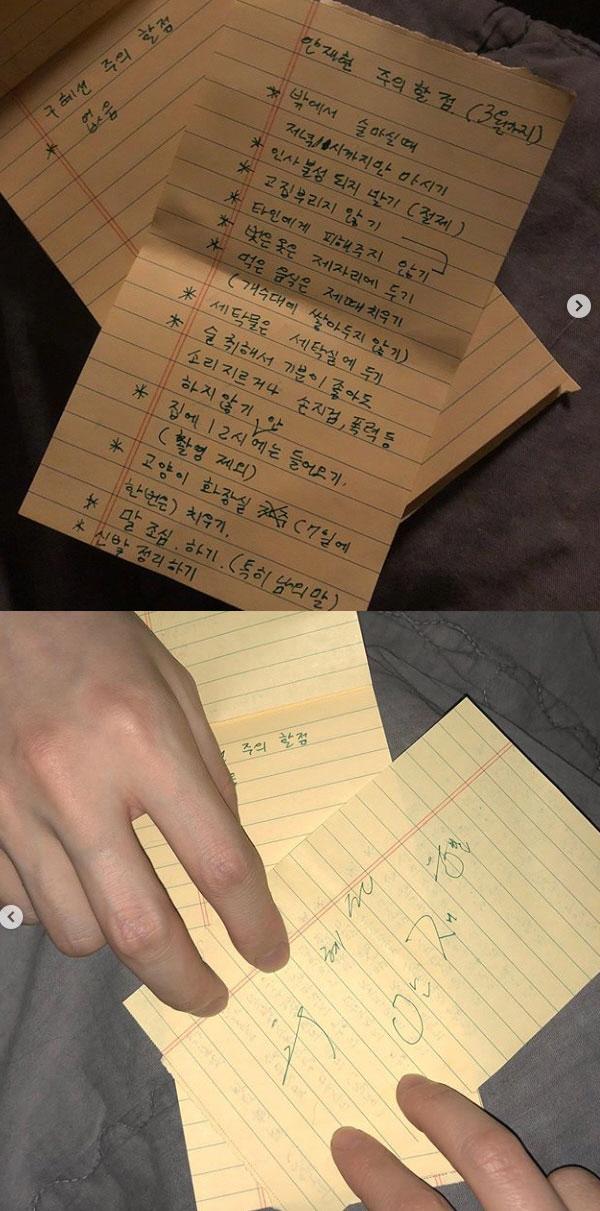 구혜선 주의 할점
* 없음
안재현 주의 할 점. (3일까지)
* 밖에서 술마실때
저녁 11시까지만 마시기
* 인사불성 되지 말기 (절제)
* 고집부리지 않기
* 타인에게 피해주지 않기
* 벗은옷은 제자리에 두기
* 먹은 음식은 제때 치우기
(개수대에 쌓아두지 않기)
* 세탁물은 세탁실에 두기
* 술 취해서 기분이 좋아도
소리지르거나 손지검, 폭력 등
하지 않기
* 집에 12시 안에는 들어오기.
(촬영 제외)
* 고양이 화장실 (7일에
한번은) 치우기.
* 말 조심. 하기. (특히 남의 말)
* 신발 정리하기
주의 할점
구혜선
안재현